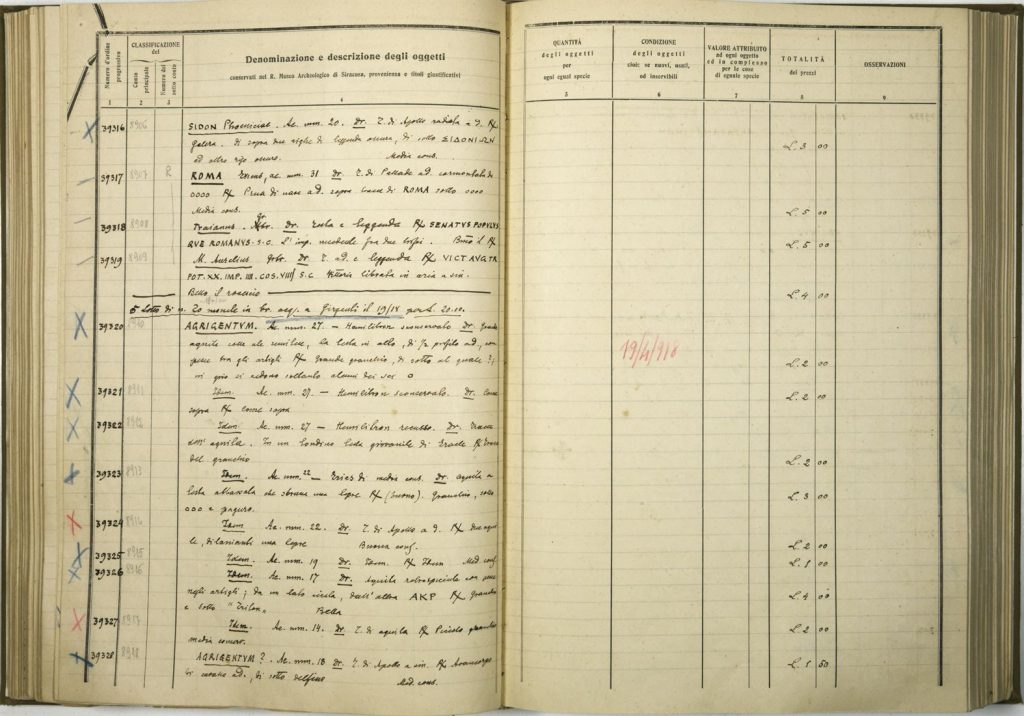 Numero d'ordine progressivo
CLASSIFICAZIONE del
Conto principale
Numero del sotto conto
Denominazione e descrizione degli oggetti
conservati nel R. Museo Archeologico di Siracusa, provenienza e titoli giustificativi
1 2 3 4
QUANTITÀ
degli oggetti
per
ogni egual specie
5
CONDIZIONE
degli oggetti
cioè: se nuovi, usati,
od inservibili
6
VALORE ATTRIBUITO
ad ogni oggetto
ed in complesso
per le cose
di eguale specie
7
TOTALITÀ
dei prezzi
8
OSSERVAZIONI
9
39316 8906 SIDON Phoeniciae. Ae. mm. 20. Dr. T. di Apollo radiata a d. R/
galera. di sopra due righe di leggenda oscura, di sotto ΣΙΔΟΝΙΩΝ
ed altro rigo oscuro. Media cons. L. 3 00
39317 8907 R ROMA ae. mm. 31 Dr. T. di Pallade ad.
oooo R/ Prua di nave a d. sopra ROMA sotto oooo
Media cons. L. 5 00
39318 8908 Traianus. Gr. br. Dr. Testa e leggenda R/ SENATVS POPVLVS
QVE ROMANVS. S.C. L'imp. fra due trofei. Buono il R/ L. 5 00
39319 8909 M. Aurelius. Gr br. Dr. T. a d. e leggenda R/ VICT AVG TR
POT. XX. IMP. III. COS. VIII S.C Vittoria librata in aria a sin.
Bello il rovescio L. 4 00
5 Lotto di n. 20 monete in br. acq. a Girgenti il 19/18 per L. 20.10.
39320 8910 AGRIGENTVM. Ae. mm. 27. — Hemilitron sconservato Dr. Grande
aquila colle ali la testa in alto, di profilo a d., con
pesce tra gli artigli R/ Grande granchio, di sotto al quale
in giro si vedono soltanto alcuni dei sei o L. 2 00
19/4/918
39321 8911 Idem. Ae. mm. 27. — Hemilitron sconservato. Dr. Come
sopra R/ come sopra L. 2 00
39322 8912 Idem Ae. mm. 27 — Hemilitron recusso. Dr. Tracce
dell' aquila. In un tondino testa giovanile di Eracle R/ Tracce
del granchio L. 2 00
39323 8913 Idem. Ae. mm. 22 — di media cons. Dr. aquila a
testa abbassata che sbrana una lepre R/ (buono). Granchio, sotto
ooo e paguro. L. 3 00
39324 8914 Idem Ae. mm. 22. Dr. T. di Apollo a d. R/ due aqui
le, dilanianti una lepre Buona cons. L. 2 00
39325 8915 Idem. Ae. mm. 19 Dr. Idem. R/ Idem Med. cons. L. 1 00
39326 8916 Idem. Ae. mm. 17 Dr. Aquila retrospiciente con
negli artigli; da un lato dall'altra AKP R/ Granchio
e sotto "Triton" Bella L. 4 00
39327 8917 Idem. Ae. mm. 14. Dr. T. di aquila R/ Piccolo granchio
media conserv. L. 2 00
39328 8918 AGRIGENTVM? Ae. mm. 18 Dr. T. di Apollo a sin. R/ Avancorpo
di cavallo a d., di sotto delfino Med. cons. L. 1 50